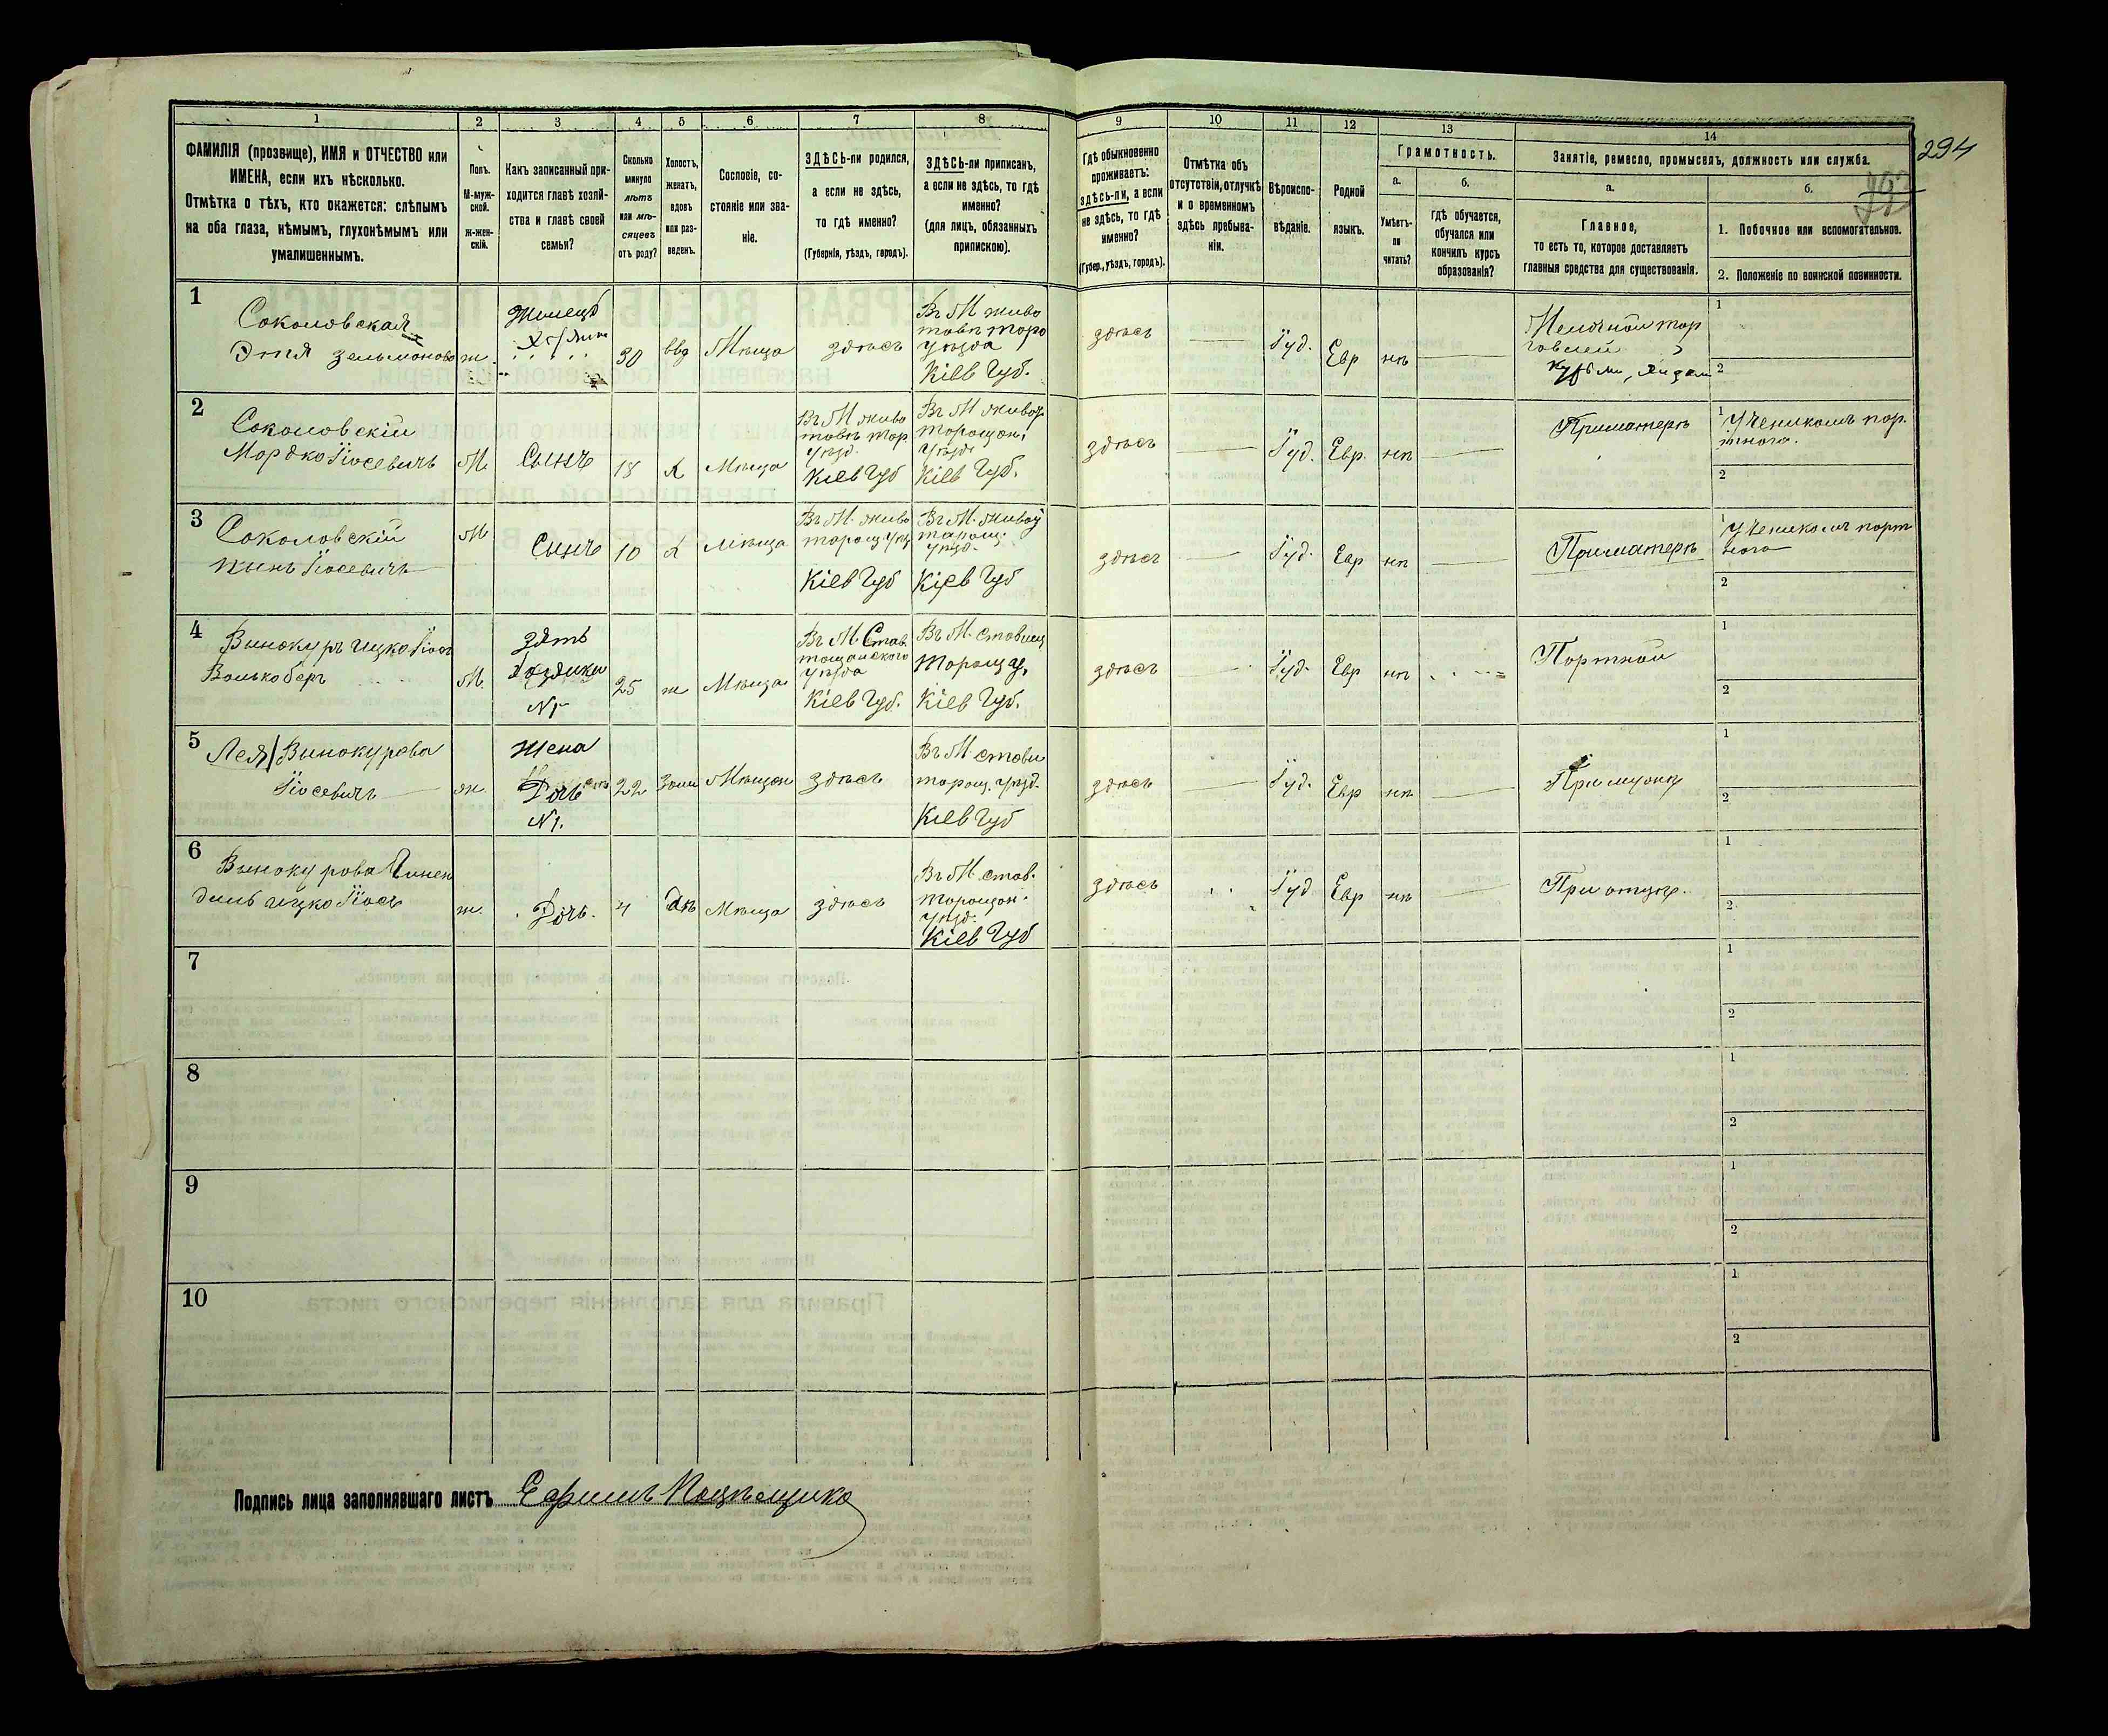 294
1 2 3 4 5 6 7 8 9 10 11 12 13 14
ФАМИЛІЯ (прозвище), ИМЯ и ОТЧЕСТВО или
ИМЕНА, если ихъ нѣсколько.
Отмѣтка о тѣхъ, кто окажется: слѣпымъ
на оба глаза, нѣмымъ, глухонѣмымъ или
умалишеннымъ.
Полъ.
М-муж-
ской.
ж-жен-
скій.
Какъ записанный при-
ходится главѣ хозяй-
ства и главѣ своей
семьи?
Сколько
минуло
лѣтъ
или мѣ-
сяцевъ
отъ роду?
Холостъ,
женатъ,
вдовъ
или раз-
веденъ.
Сословіе, со-
стояніе или зва-
ніе.
ЗДѢСЬ-ли родился,
а если не здѣсь,
то гдѣ именно?
(Губернія, уѣздъ, городъ).
ЗДѢСЬ-ли приписанъ,
а если не здѣсь, то гдѣ
именно?
(для лицъ, обязанныхъ
припискою).
Гдѣ обыкновенно
проживаетъ:
здѣсь-ли, а если
не здѣсь, то гдѣ
именно?
(Губер., уѣздъ, городъ).
Отмѣтка объ
отсутствіи, отлучкѣ
и о временномъ
здѣсь пребыва-
ніи.
Вѣроиспо-
вѣданіе.
Родной
языкъ.
Грамотность.
а.
Умѣетъ-
ли
читать?
б.
гдѣ обучается,
обучался или
кончилъ курсъ
образованія?
Занятіе, ремесло, промыселъ, должность или служба.
а.
Главное,
то есть то, которое доставляетъ
главныя средства для существованія.
б.
1. Побочное или вспомогательное.
2. Положеніе по воинской повинности.
1
Соколовская
Этя Зельманово
ж.
Жилецъ
30
ввд
Мѣща
здѣсь
Въ М живо
товѣ торо
Уѣзда
Кіев Губ.
здѣсь
Іуд.
Евр
нѣ
Мелочной тор
говлей
1
2
2
Соколовскій
Мордко Іосевичъ
М.
Сынъ
18
Х
Мѣща
Въ М живо
товѣ тор.
Уѣзд.
Кіев Губ
Въ М живот
торощан.
Уѣзд.
Кіев Губ.
здѣсь
Іуд.
Евр.
нѣ
При матерѣ
1 Ученикомъ пор.
тного.
2
3
Соколовскій
Іосевичъ
М
Сынъ
10
Х
Мѣща
Въ М. живо
торощ Уѣз
Кіев Губ
Въ М. живот
торощ.
Уѣзд.
Кіев Губ
здѣсь
Іуд.
Евр
нѣ
При матерѣ
1 Ученикомъ порт
ного
2
4
Винокуръ Ицко Іось
Волькоберъ
М.
Зять
хозяики
№ 1
25
ж
Мѣща
Въ М Став.
Уѣзда
Кіев Губ.
Въ М. Ставищ
Торощ
Кіев Губ.
здѣсь
Іуд.
Евр
нѣ
Портной
1
2
5
Лея Винокурова
Іосевичъ
ж.
Жена
Дочь
№ 1.
22
Зам
Мѣщан
здѣсь
Въ М стави
торощ. Уѣзд.
Кіев Губ
здѣсь
Іуд.
Евр
нѣ
При мужу
1
2
6
Винокурова
Ицко Іось
ж.
Дочь.
4
Мѣща
здѣсь
Въ М. став.
торощан.
Уѣзд.
Кіев Губ
здѣсь
Іуд
Евр
нѣ
При отцѣ.
1
2
7
1
2
8
1
2
9
1
2
10
1
2
Подпись лица заполнявшаго листъ Ефимъ